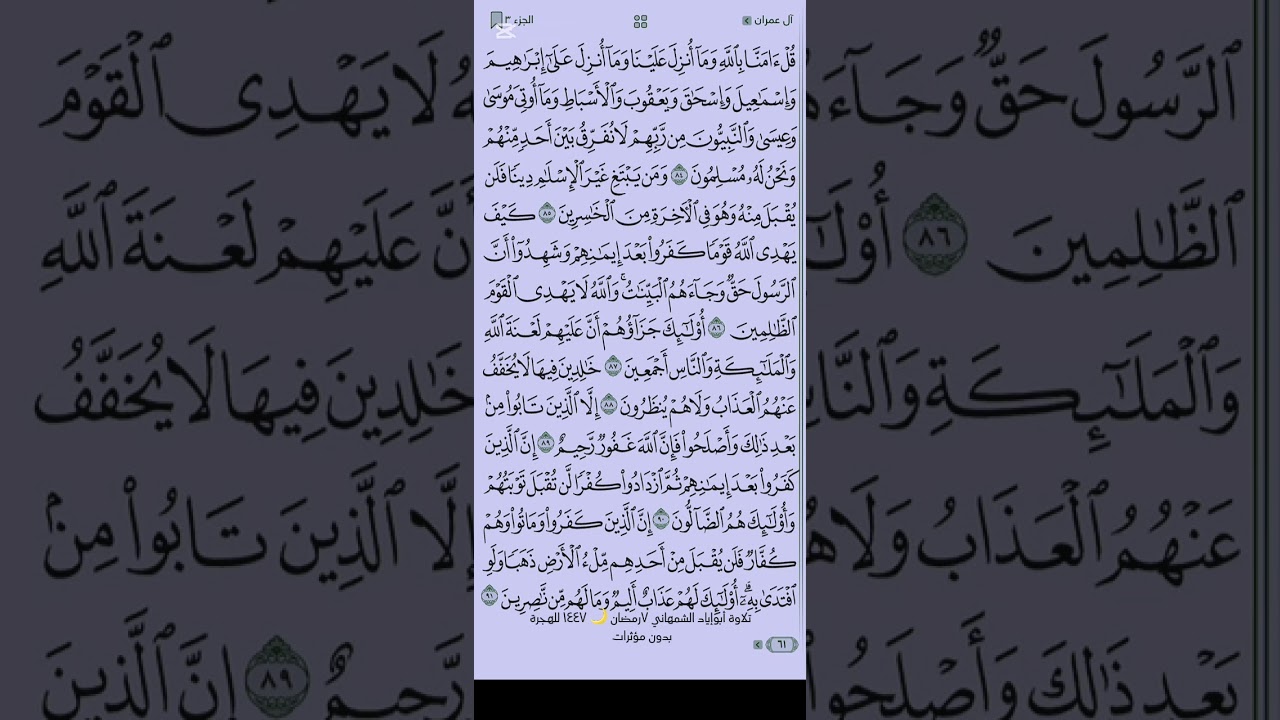 آل عمران الجزء ٣
قُلْ ءَامَنَّا بِٱللَّهِ وَمَآ أُنزِلَ عَلَيْنَا وَمَآ أُنزِلَ عَلَىٰٓ إِبْرَٰهِيمَ
وَإِسْمَٰعِيلَ وَإِسْحَٰقَ وَيَعْقُوبَ وَٱلْأَسْبَاطِ وَمَآ أُوتِىَ مُوسَىٰ
وَعِيسَىٰ وَٱلنَّبِيُّونَ مِن رَّبِّهِمْ لَا نُفَرِّقُ بَيْنَ أَحَدٍ مِّنْهُمْ
وَنَحْنُ لَهُۥ مُسْلِمُونَ ٨٤ وَمَن يَبْتَغِ غَيْرَ ٱلْإِسْلَٰمِ دِينًا فَلَن
يُقْبَلَ مِنْهُ وَهُوَ فِى ٱلْءَاخِرَةِ مِنَ ٱلْخَٰسِرِينَ ٨٥ كَيْفَ
يَهْدِى ٱللَّهُ قَوْمًا كَفَرُوا۟ بَعْدَ إِيمَٰنِهِمْ وَشَهِدُوٓا۟ أَنَّ
ٱلرَّسُولَ حَقٌّ وَجَآءَهُمُ ٱلْبَيِّنَٰتُ ۚ وَٱللَّهُ لَا يَهْدِى ٱلْقَوْمَ
ٱلظَّٰلِمِينَ ٨٦ أُو۟لَٰٓئِكَ جَزَآؤُهُمْ أَنَّ عَلَيْهِمْ لَعْنَةَ ٱللَّهِ
وَٱلْمَلَٰٓئِكَةِ وَٱلنَّاسِ أَجْمَعِينَ ٨٧ خَٰلِدِينَ فِيهَا لَا يُخَفَّفُ
عَنْهُمُ ٱلْعَذَابُ وَلَا هُمْ يُنظَرُونَ ٨٨ إِلَّا ٱلَّذِينَ تَابُوا۟ مِنۢ
بَعْدِ ذَٰلِكَ وَأَصْلَحُوا۟ فَإِنَّ ٱللَّهَ غَفُورٌ رَّحِيمٌ ٨٩ إِنَّ ٱلَّذِينَ
كَفَرُوا۟ بَعْدَ إِيمَٰنِهِمْ ثُمَّ ٱزْدَادُوا۟ كُفْرًا لَّن تُقْبَلَ تَوْبَتُهُمْ
وَأُو۟لَٰٓئِكَ هُمُ ٱلضَّآلُّونَ ٩٠ إِنَّ ٱلَّذِينَ كَفَرُوا۟ وَمَاتُوا۟ وَهُمْ
كُفَّارٌ فَلَن يُقْبَلَ مِنْ أَحَدِهِم مِّلْءُ ٱلْأَرْضِ ذَهَبًا وَلَوِ
ٱفْتَدَىٰ بِهِۦٓ ۗ أُو۟لَٰٓئِكَ لَهُمْ عَذَابٌ أَلِيمٌ وَمَا لَهُم مِّن نَّٰصِرِينَ ٩١
تلاوة أبوإياد الشمهاني ٧رمضان 🌙 ١٤٤٧ للهجرة
بدون مؤثرات
٦١